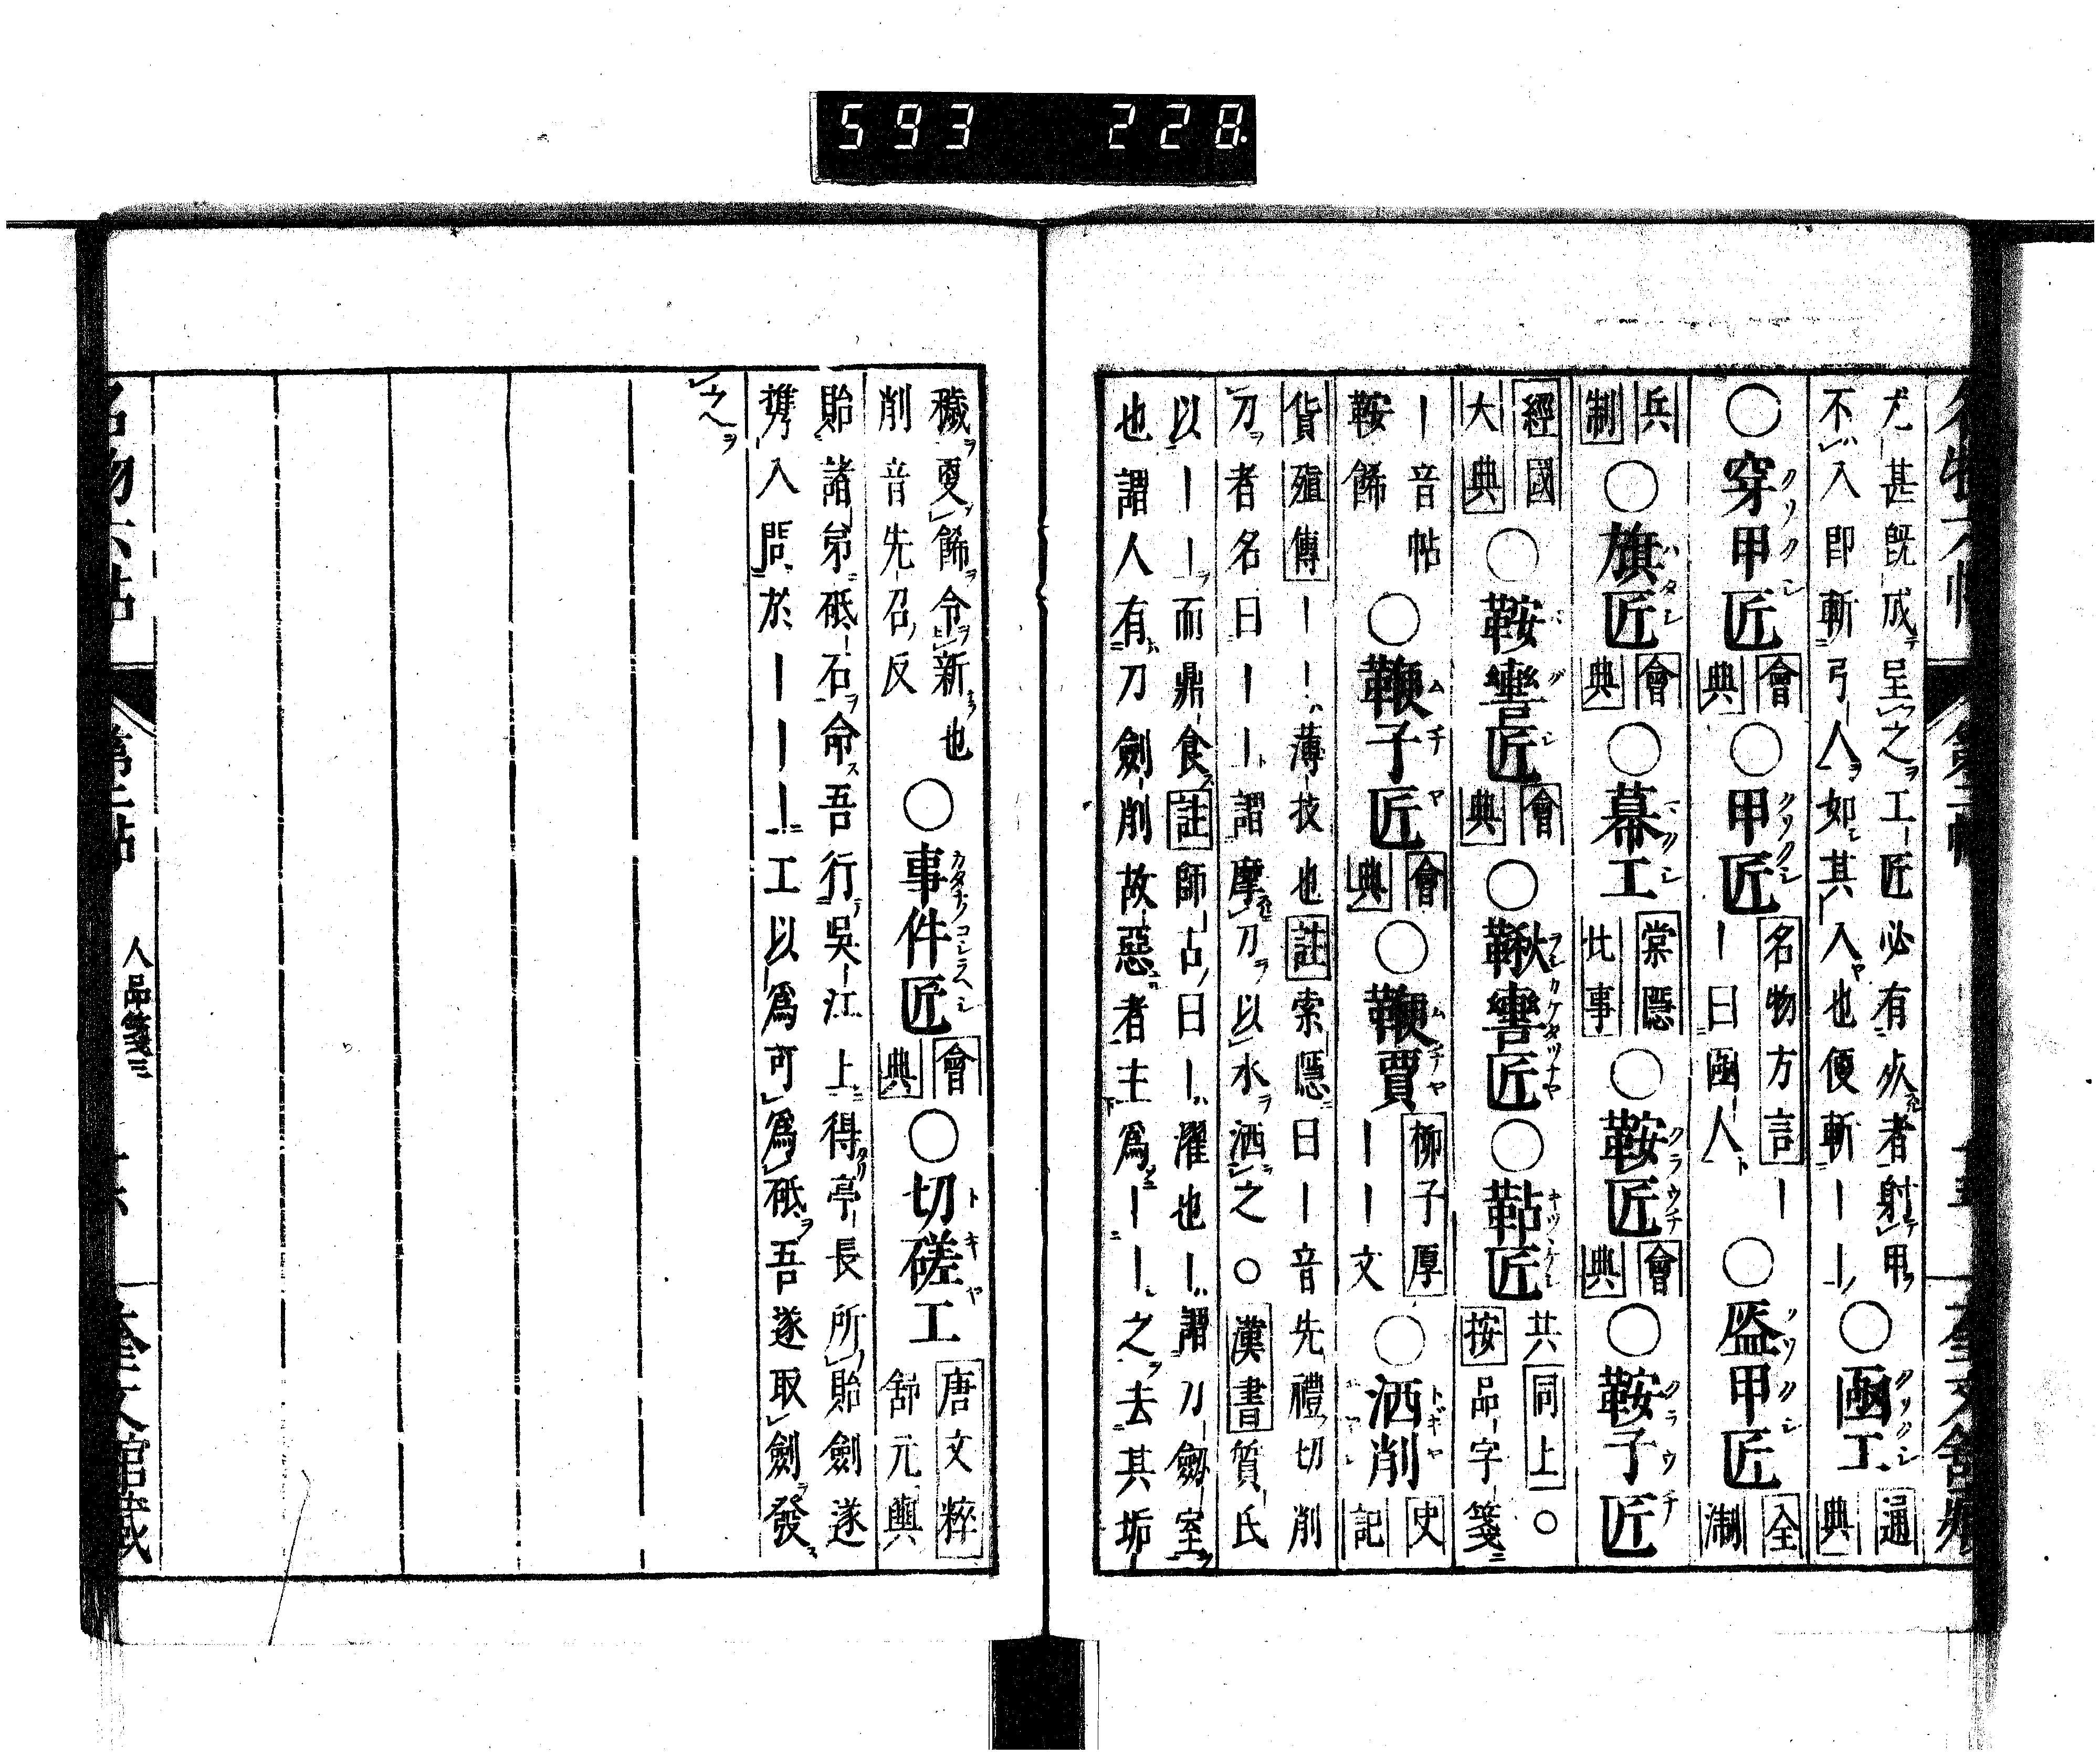 593 228
尤甚既成呈之工匠必有死者射甲
不入即斬弓人如其入也便斬ーー○函工通典
○穿甲匠會典○甲匠名物方言ーー曰函人○盔甲匠全淛
兵制○旗匠會典○幕工棠隱比事○鞍匠會典○鞍子匠
經國大典○鞍轡匠會典○鞦轡匠○鞊匠共同上○按品字箋
ー音帖鞍餙○鞭子匠會典○鞭賈柳子厚ーー文○洒削史記
貨殖傳ーー薄技也註索隱曰ー音先禮切削
刀者名曰ーー謂摩刀以水洒之○漢書質氏
以ーー而鼎食註師古曰ー濯也ー謂刀劔室
也謂人有刀劔削故惡者主爲ーー之去其垢
穢更餙令新也
削音先召反○事件匠會典○切磋工唐文粹舒元輿
貽諸弟砥石命吾行吳江上得亭長所貽劔遂
携入問於ーーー工以爲可爲砥吾遂取劔發
之
名物六帖 第二帖 人品箋三 奎文館藏